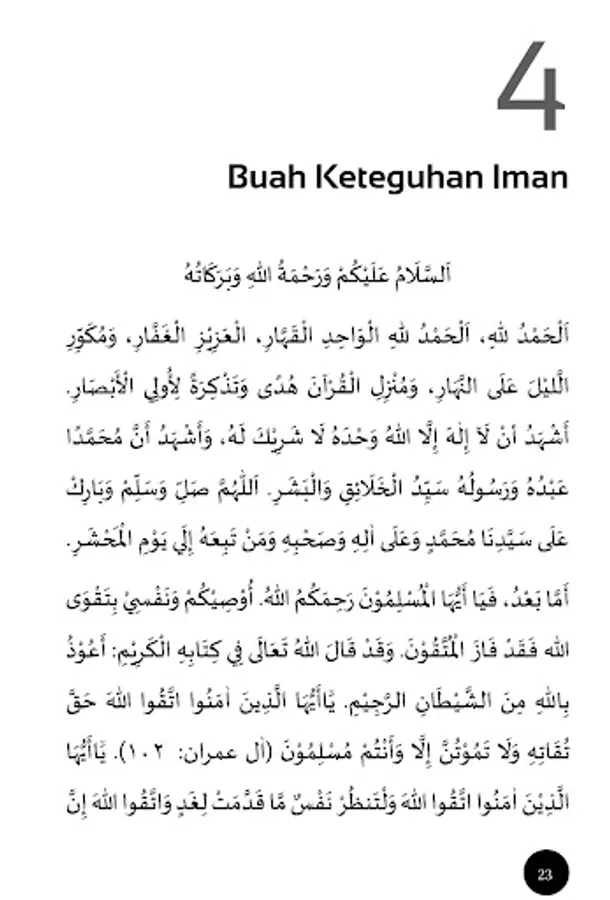 4
Buah Keteguhan Iman
اَلسَّلَامُ عَلَيْكُمْ وَرَحْمَةُ اللهِ وَبَرَكَاتُهُ
اَلْحَمْدُ لِلهِ، اَلْحَمْدُ لِلهِ الْوَاحِدِ الْقَهَّارِ، الْعَزِيْزِ الْغَفَّارِ، وَمُكَوِّرِ
الَّليْلَ عَلَى النَّهَارِ، وَمُنْزِلِ الْقُرْآنَ هُدًى وَتَذْكِرَةً لِأُولِي الْأَبْصَارِ.
أَشْهَدُ أنْ لَآ إِلٰهَ إِلَّا اللهُ وَحْدَهُ لَا شَرِيْكَ لَهُ، وَأَشْهَدُ أَنَّ مُحَمَّدًا
عَبْدُهُ وَرَسُولُهُ سَيِّدُ الْخَلَائِقِ وَالْبَشَرِ. اَللّٰهُمَّ صَلِّ وَسَلِّمْ وَبَارِكْ
عَلَى سَيَّدِنَا مُحَمَّدٍ وَعَلَى اٰلِهِ وَصَحْبِهِ وَمَنْ تَبِعَهُ إِلَي يَوْمِ الْمَحْشَرِ.
أَمَّا بَعْدُ، فَيَا أَيُّهَا الْمُسْلِمُوْنَ رَحِمَكُمُ اللهُ. أُوْصِيْكُمْ وَنَفْسِيْ بِتَقْوَى
الله فَقَدْ فَازَ الْمُتَّقُوْنَ. وَقَدْ قَالَ اللهُ تَعَالَى فِي كِتَابِهِ الْكَرِيْمِ: أَعُوْذُ
بِاللهِ مِنَ الشَّيْطَانِ الرَّجِيْمِ. يٰٓاأَيُّهَا الَّذِينَ اٰمَنُوا اتَّقُوا اللهَ حَقَّ
تُقَاتِهِ وَلَا تَمُوْتُنَّ إِلَّا وَأَنْتُمْ مُسْلِمُوْنَ (اٰل عمران: ١٠٢). يٰٓاأَيُّهَا
الَّذِيْنَ اٰمَنُوا اتَّقُوا اللهَ وَلْتَنظُرْ نَفْسٌ مَّا قَدَّمَتْ لِغَدٍ وَاتَّقُوا اللهَ إِنَّ
23